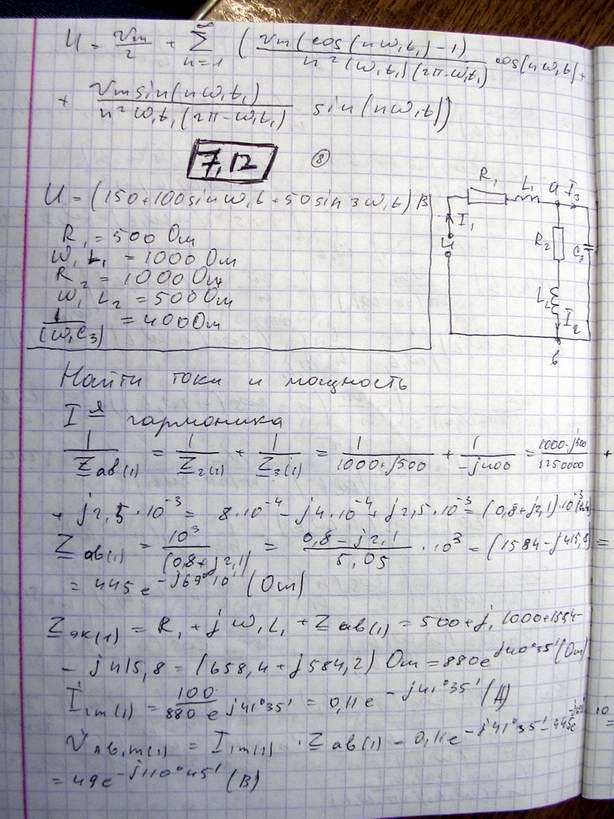 U = Vm/2 + ∞Σn=1 ( Vm(cos(nω₁t₁)-1) / n²(ω₁t₁)(2π-ω₁t₁) cos(nω₁t) +
+ Vm sin(nω₁t₁) / n²ω₁t₁(2π-ω₁t₁) sin(nω₁t))
7,12 ⑧
U = (150+100sinω₁t+50sin3ω₁t)В
R₁ = 500 Ом
ω₁L₁ = 1000 Ом
R₂ = 1000 Ом
ω₁L₂ = 500 Ом
1/(ω₁C₃) = 400 Ом
R₁ L₁ a I₃
I₁ R₂ C₃
U
L₂
I₂
в
Найти токи и мощность
I я гармоника
1/Zав(1) = 1/Z₂(1) + 1/Z₃(1) = 1/1000+j500 + 1/-j400 = 1000-j500/1250000 +
+ j2,5·10⁻³ = 8·10⁻⁴ - j4·10⁻⁴ + j2,5·10⁻³ = (0,8+j2,1)·10⁻³
Zав(1) = 10³/(0,8+j2,1) = 0,8-j2,1/5,05 · 10³ = (158,4-j415,8) =
= 445e^-j69°10' (Ом)
Zэк(1) = R₁ + jω₁L₁ + Zав(1) = 500+j1000+158,4
- j415,8 = (658,4+j584,2) Ом = 880e^j41°35' (Ом)
I₁m(1) = 100/880e^j41°35' = 0,11e^-j41°35' (А)
Vав,m(1) = I₁m(1) · Zав(1) = 0,11e^-j41°35' · 445e
= 49e^-j110°45' (В)